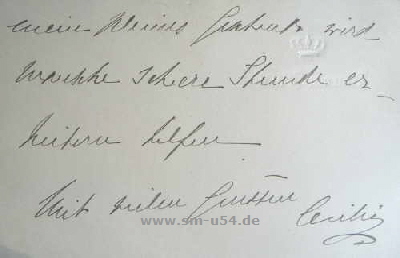 mein kleines Geschenk wird
manche schwere Stunde er-
heitern helfen
Mit vielen Grüssen Cecilie
www.sm-u54.de